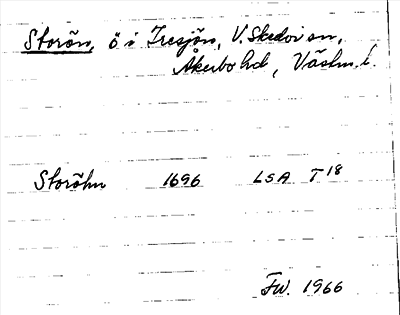 Storön, ö i Tresjön, V. Skedvi sn,
Åkerbo hd, Västm. l.
Storöhn 1696 LSA T 18
FW. 1966